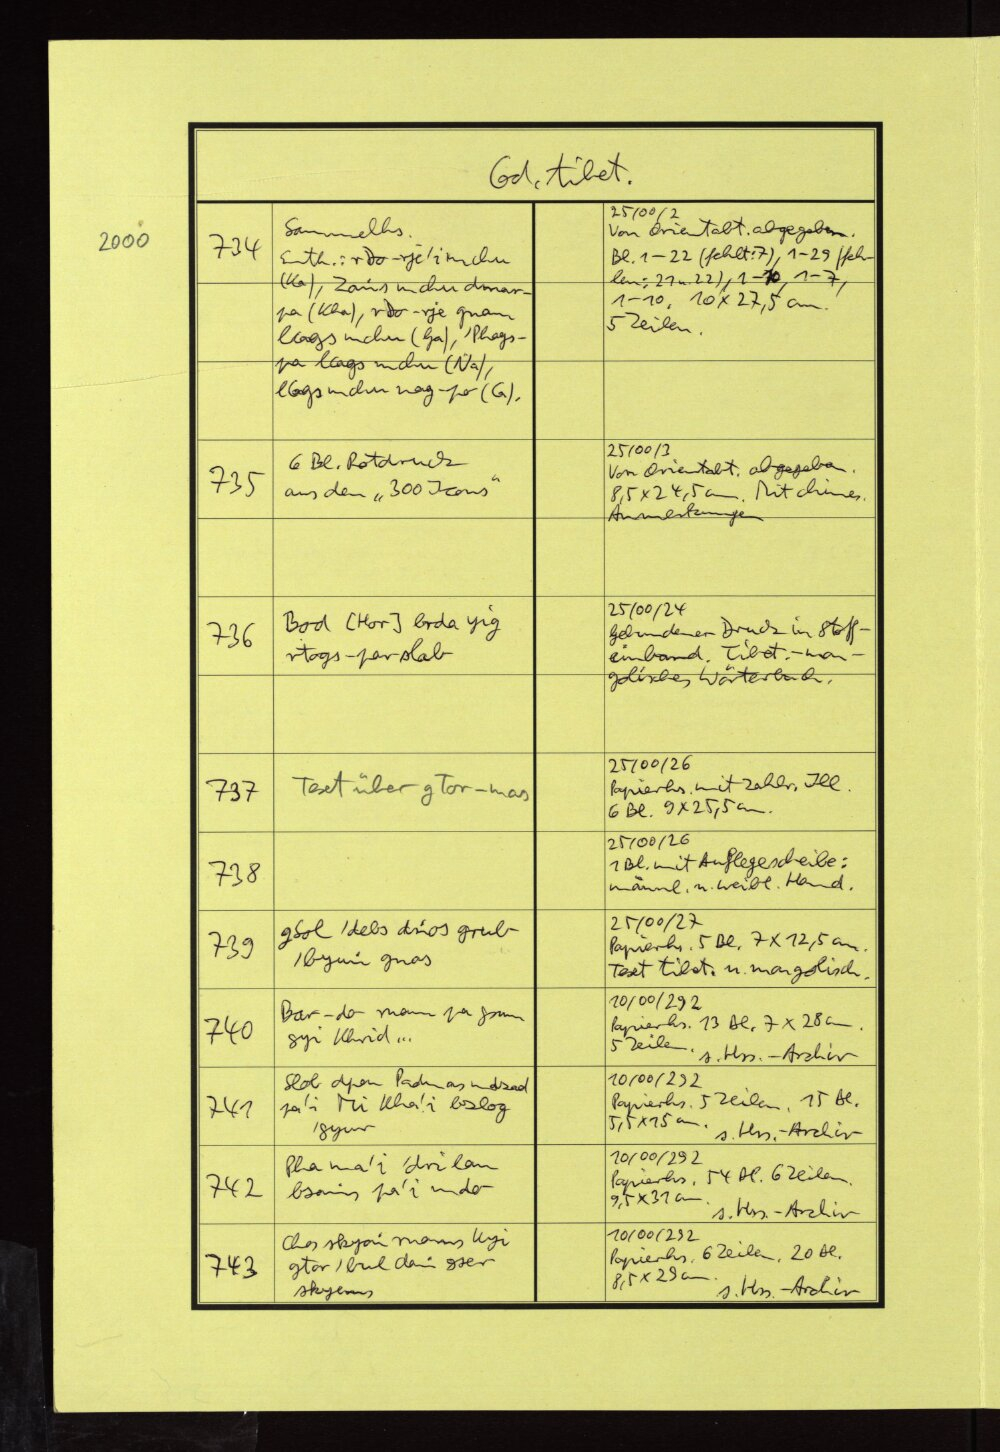 Cod. tibet.
2000
734
Sammelhs.
Enth.: rDo-rje'i mchu
(Ka), Zaṅs mchu dmar-
pa (Kha), rDo-rje gnam
lcags mchu (Ga), 'Phags-
pa lcags mchu (Ṅa),
lCags mchu nag-po (Ca).
25/00/2
Von Orientabt. abgegeben.
Bl. 1-22 (fehlt: 7), 1-29 (feh-
len: 21 u. 22), 1-10, 1-7,
1-10. 10 x 27,5 cm.
5 Zeilen.
735
6 Bl. Rotdruck
aus den „300 Icons“
25/00/3
Von Orientabt. abgegeben.
8,5 x 24,5 cm. Mit chines.
Anmerkungen
736
Bod [Hor] brda yig
rtogs-par slab
25/00/24
Gebundener Druck in Stoff-
einband. Tibet.-mon-
golisches Wörterbuch.
737
Text über gTor-mas
25/00/26
Papierhs. mit zahlr. Ill.
6 Bl. 9 x 25,5 cm.
738
25/00/26
1 Bl. mit Auflegescheibe:
männl. u. weibl. Hand.
739
gSol 'debs dṅos grub
'byuṅ gnas
25/00/27
Papierhs. 5 Bl. 7 x 12,5 cm.
Text tibet. u. mongolisch.
740
Bar-do rnam pa gsum
gyi khrid...
10/00/292
Papierhs. 13 Bl. 7 x 28 cm.
5 Zeilen. s. Hss.-Archiv
741
Slob dpon Padmas mdzad
pa'i Mi kha'i bzlog
'gyur
10/00/292
Papierhs. 5 Zeilen. 15 Bl.
5,5 x 15 cm. s. Hss.-Archiv
742
Pha ma'i 'dri lan
bzaṅs pa'i mdo
10/00/292
Papierhs. 54 Bl. 6 Zeilen.
9,5 x 31 cm. s. Hss.-Archiv
743
Chos skyoṅ rnams kyi
gtor 'bul daṅ gser
skyems
10/00/292
Papierhs. 6 Zeilen. 20 Bl.
8,5 x 29 cm. s. Hss.-Archiv